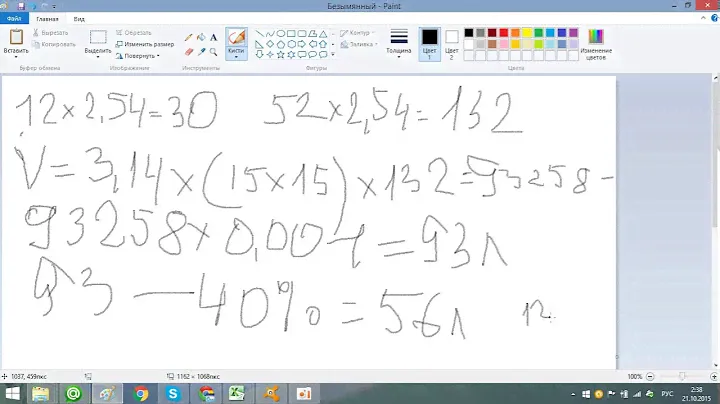 Безымянный - Paint
Файл Главная Вид
Вставить Вырезать Копировать Выделить Обрезать Изменить размер Повернуть Кисти Контур Заливка Толщина Цвет 1 Цвет 2 Изменение цветов
Буфер обмена Изображение Инструменты Фигуры Цвета
12×2,54=30 52×2,54=132
V=3,14×(15×15)×132=93258-
93258×0,001=93л
93-40%=56л 12
1037, 459пкс 1162 × 1068пкс 100%
РУС 2:38 21.10.2015